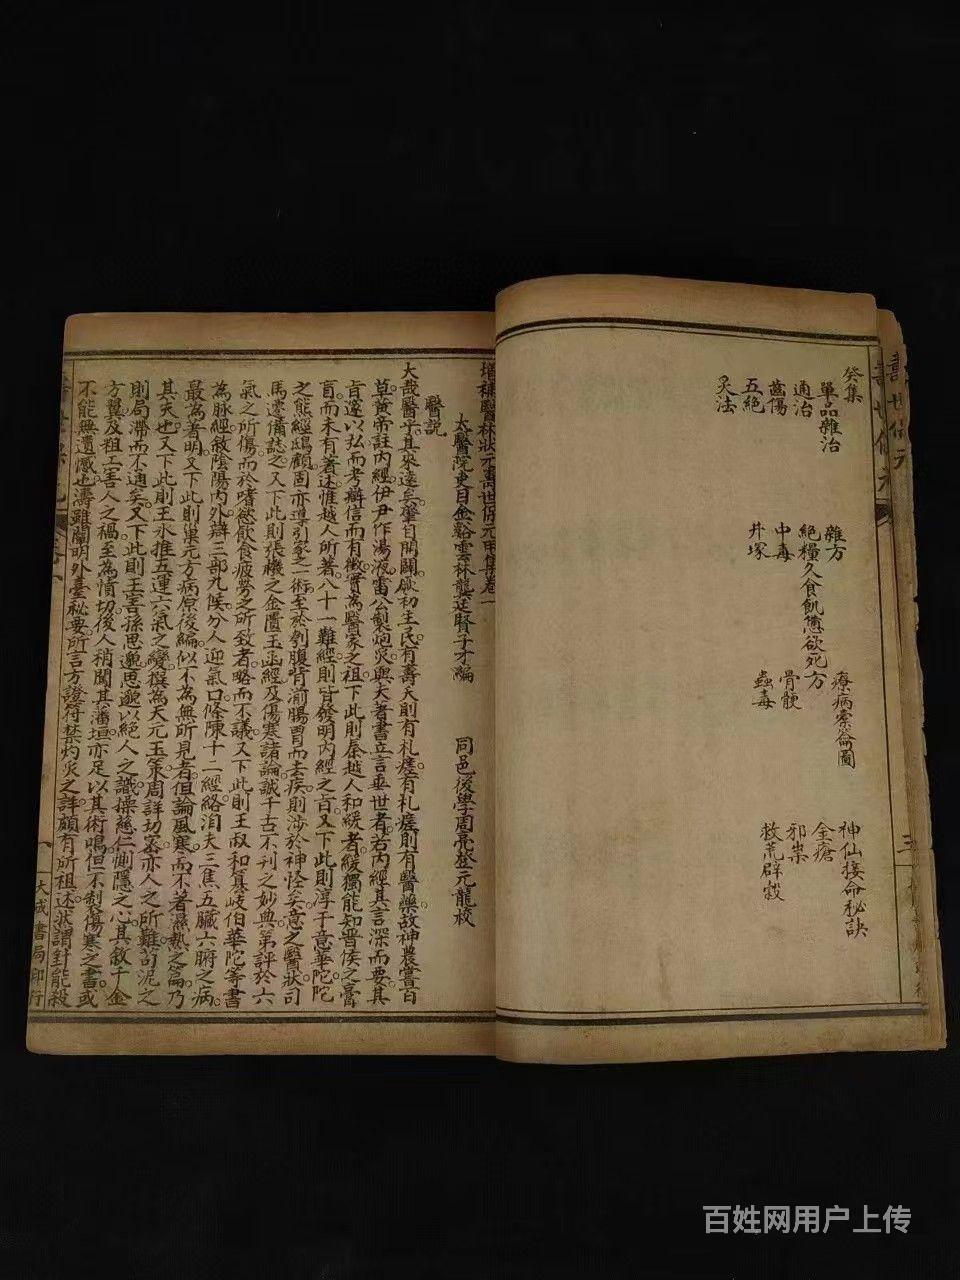 癸集
單品雜治
雜方
療病索侖圖
神仙接命秘訣
通治
絕糧久食飢憊欲死方
金瘡
齒傷
中毒
骨骾
邪祟
五絕
井塚
蟲毒
救荒辟穀
灵法
增補醫林狀元壽世保元甲集卷一
太醫院吏目金谿雲林龔廷賢子才編 同邑後學周亮登元龍校
醫説
大哉醫乎其來遠矣肇自開闢厥初生民有壽夭則有札瘥有札瘥則有醫藥故神農嘗百
草黃帝註內經伊尹作湯液雷公製炮炙與夫著書立言垂世者若內經其言深而要其
旨邃以弘而考辯信而有徵實為醫家之祖下此則秦越人和緩者緩獨能知晋侯之膏
肓而未有著述惟越人所著八十一難經則皆發明內經之旨又下此則淳于意華陀陀
之熊經鴟顧固亦導引家之一術至於刳腹背湔腸胃而去疾則涉於神怪矣意之醫狀司
馬遷備誌之又下此則張機之金匱玉函經及傷寒諸論誠千古不刊之妙典第評於六
氣之所傷而於嗜慾飲食疲勞之所致者略而不議又下此則王叔和纂岐伯華陀等書
為脉經敘陰陽內外辯三部九候分人迎氣口條陳十二經絡洎夫三焦五臟六腑之病
最為著明又下此則巢元方病原後編似不為無所見者但論風寒而不著濕熱之篇乃
其失也又下此則王氷推五運六氣之變撰為天元玉策周詳切密亦人之所難苟泥之
則局滯而不通矣又下此則王燾孫思邈思邈以絕人之識操慈仁惻隱之心其敘千金
方翼及粗工害人之禍至為憤切後人稍闖其藩垣亦足以其術鳴但不制傷寒之書或
不能無遺憾也濤雖闡明外臺秘要所言方證符禁灼灸之詳頗有所祖述狀謂針能殺
一
大成書局印行
壽世保元
百姓网用户上传